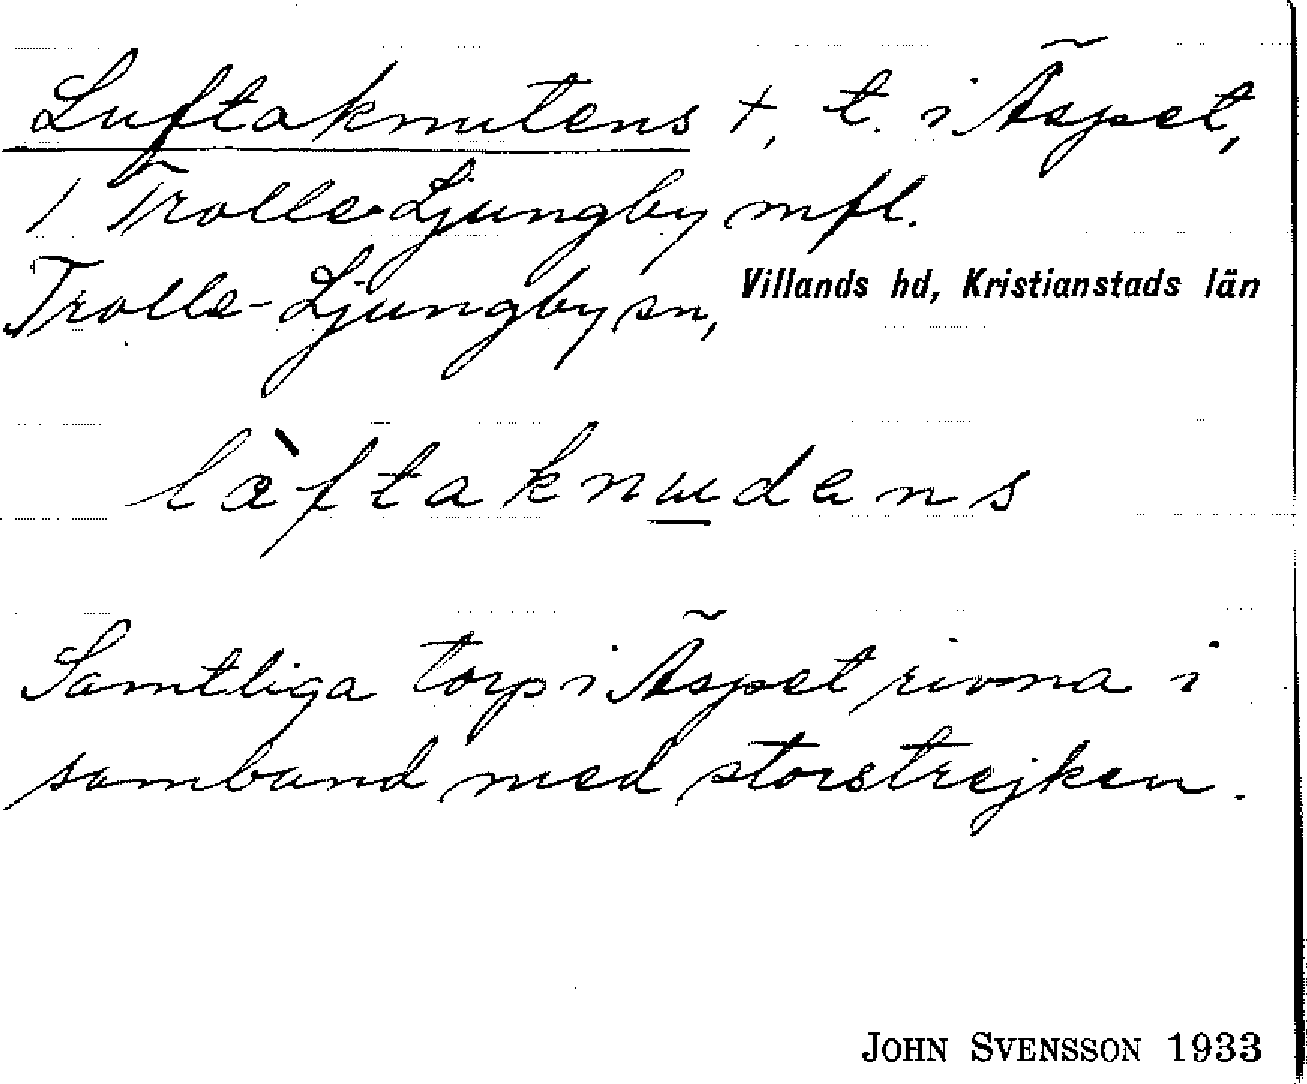 Luftaknutens +, t. i Äspet,
1 Trolle-Ljungby mfl.
Trolle-Ljungby sn, Villands hd, Kristianstads län
làftaknɯdens
Samtliga torp i Äspet rivna i
samband med storstrejken.
JOHN SVENSSON 1933